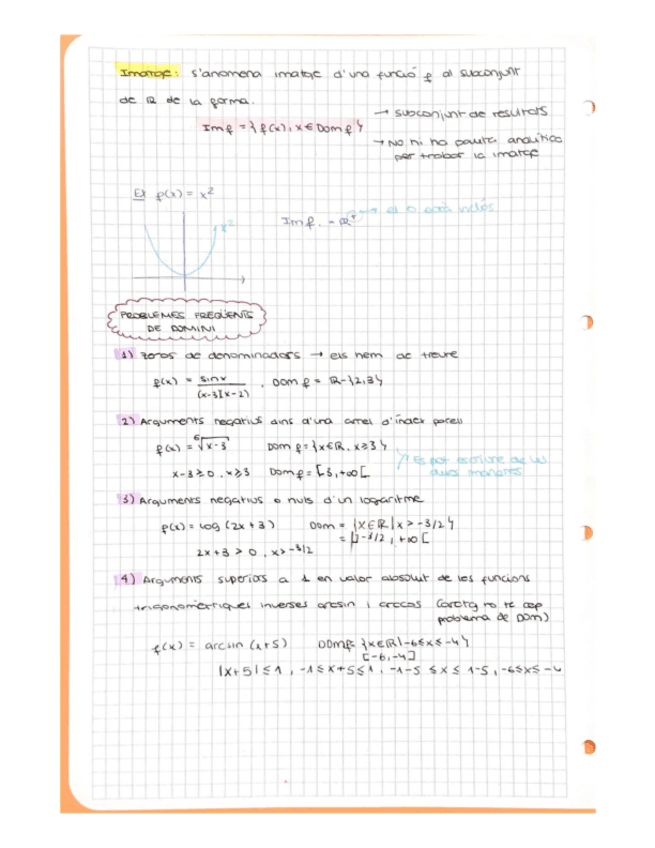 Imatge: S'anomena imatge d'una funció f al subconjunt
de R de la forma.
Imf = { f(x), x ∈ Dom f }
→ subconjunt de resultats
→ No hi ha pauta analítica
per trobar la imatge
Ex f(x) = x²
x²
Imf. = R⁺ → el 0 està inclòs
PROBLEMES FREQÜENTS
DE DOMINI
1) zeros de denominadors → els hem de treure
f(x) = sin x / (x-3)(x-2) , Dom f = R-{2,3}
2) Arguments negatius dins d'una arrel d'índex parell
f(x) = ⁶√x-3 Dom f = {x ∈ R, x ≥ 3}
Es pot escriure de les
dues maneres
x-3 ≥ 0, x ≥ 3 Dom f = [3, +∞[
3) Arguments negatius o nuls d'un logaritme
f(x) = log (2x+3) Dom = {x ∈ R | x > -3/2}
= ]-3/2, +∞[
2x+3 > 0, x > -3/2
4) Arguments superiors a 1 en valor absolut de les funcions
trigonomètriques inverses arcsin i arccos (arctg no té cap
problema de Dom)
f(x) = arcsin (x+5) Dom f = {x ∈ R | -6 ≤ x ≤ -4}
[-6, -4]
|x+5| ≤ 1, -1 ≤ x+5 ≤ 1, -1-5 ≤ x ≤ 1-5, -6 ≤ x ≤ -4